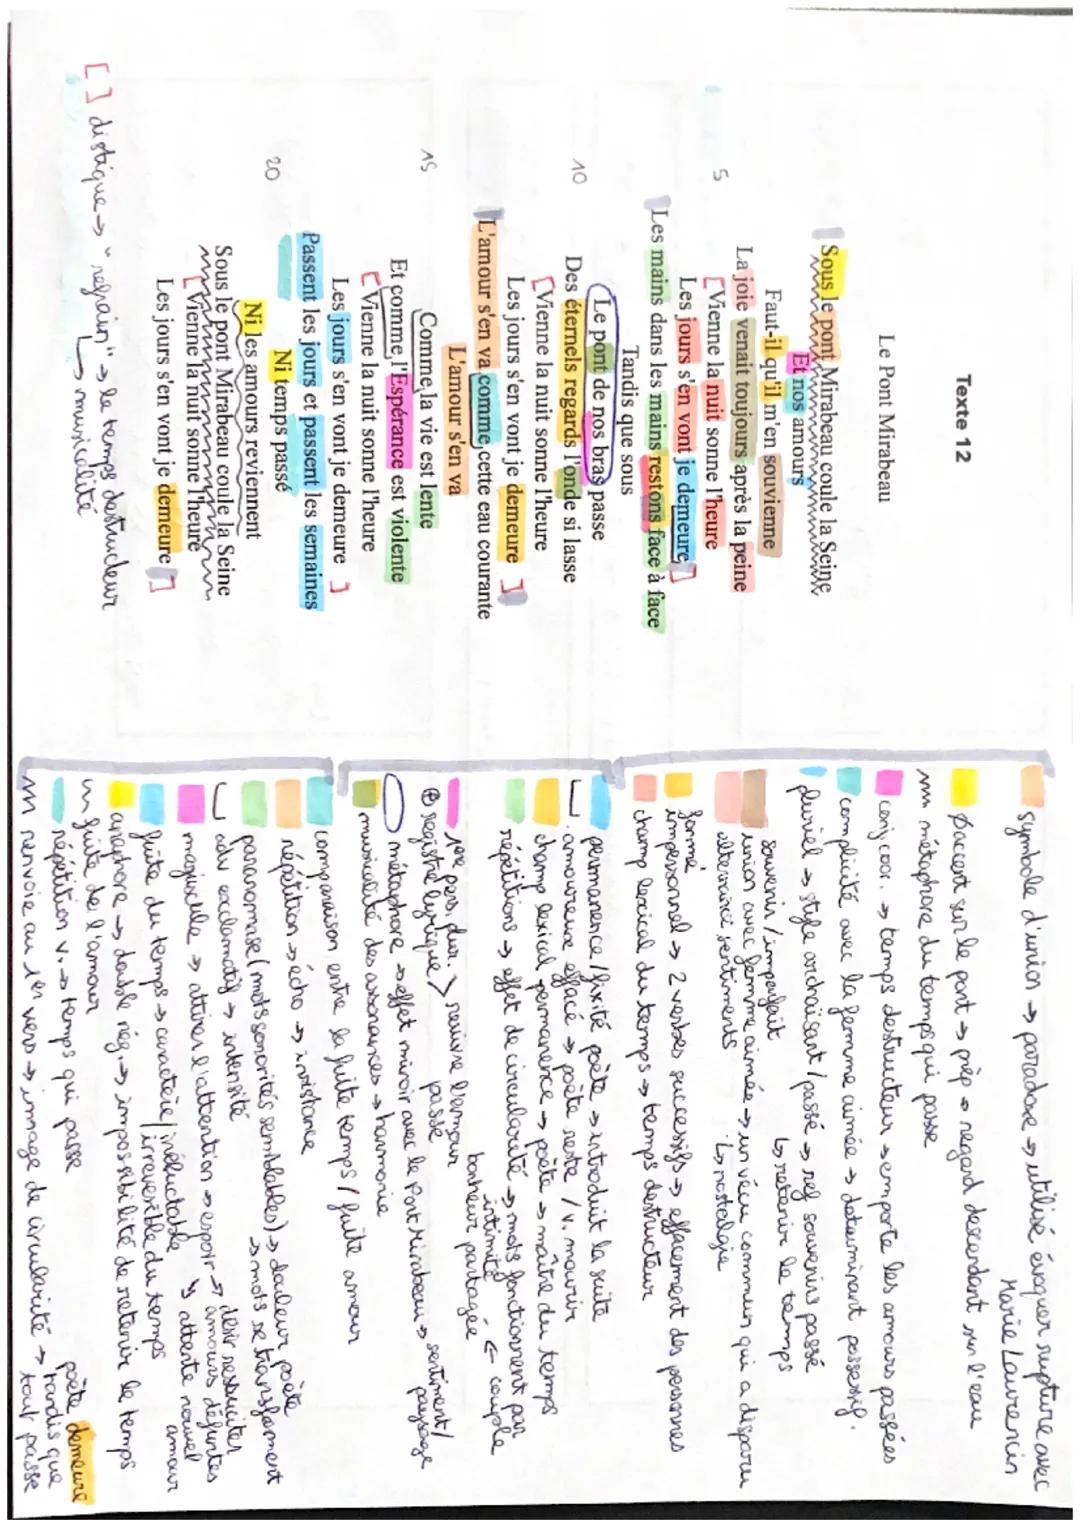 Texte 12
Le Pont Mirabeau
Sous le pont Mirabeau coule la Seine
Et nos amours
Faut-il qu'il m'en souvienne
La joie venait toujours après la peine
5
[Vienne la nuit sonne l'heure
Les jours s'en vont je demeure]
Les mains dans les mains restons face à face
Tandis que sous
Le pont de nos bras passe
10
Des éternels regards l'onde si lasse
[Vienne la nuit sonne l'heure
Les jours s'en vont je demeure ]
L'amour s'en va comme cette eau courante
L'amour s'en va
15
Comme la vie est lente
Et comme l'Espérance est violente
[Vienne la nuit sonne l'heure
Les jours s'en vont je demeure ]
Passent les jours et passent les semaines
20
Ni temps passé
Ni les amours reviennent
Sous le pont Mirabeau coule la Seine
[Vienne la nuit sonne l'heure
Les jours s'en vont je demeure ]
[ ] distique → "refrain" → le temps destructeur
↳ musicalité
symbole d'union → paradoxe → utilisé évoquer rupture avec
Marie Laurencin
accent sur le pont → prép → regard descendant sur l'eau
métaphore du temps qui passe
conj coor. → temps destructeur → emporte les amours passées
complicité avec la femme aimée → déterminant possessif.
pluriel → style archaïsant / passé → ref souvenirs passé
souvenir / imparfait ↳ retenir le temps
union avec femme aimée → un vécu commun qui a disparu
alternance sentiments ↳ nostalgie
impersonnel → 2 verbes successifs → effacement des personnes
champ lexical du temps → temps destructeur
permanence / fixité poète → introduit la suite
amoureuse effacé → poète reste / v. mourir
champ lexical permanence → poète → maître du temps
répétitions → effet de circularité → mots fonctionnent par
intimité ← couple
bonheur partagée
1ère pers. plur > revivre l'amour
⊕ registre lyrique passé
métaphore → effet miroir avec le Pont Mirabeau → sentiment /
paysage
musicalité des assonances → harmonie
comparaison entre la fuite temps / fuite amour
répétition → écho → insistance
paronomase (mots sonorités semblables) → douleur poète
→ mots se transforment
adv exclamatif → intensité
majuscule → attirer l'attention → espoir → désir ressusciter
amours défuntes
↳ attente nouvel
amour
fuite du temps → caractère / inéluctable
/ irréversible du temps
anaphore → double nég. → impossibilité de retenir le temps
fuite de l'amour
répétition v. → temps qui passe
poète demeure
renvoie au 1er vers → image de circularité → tandis que
tout passe